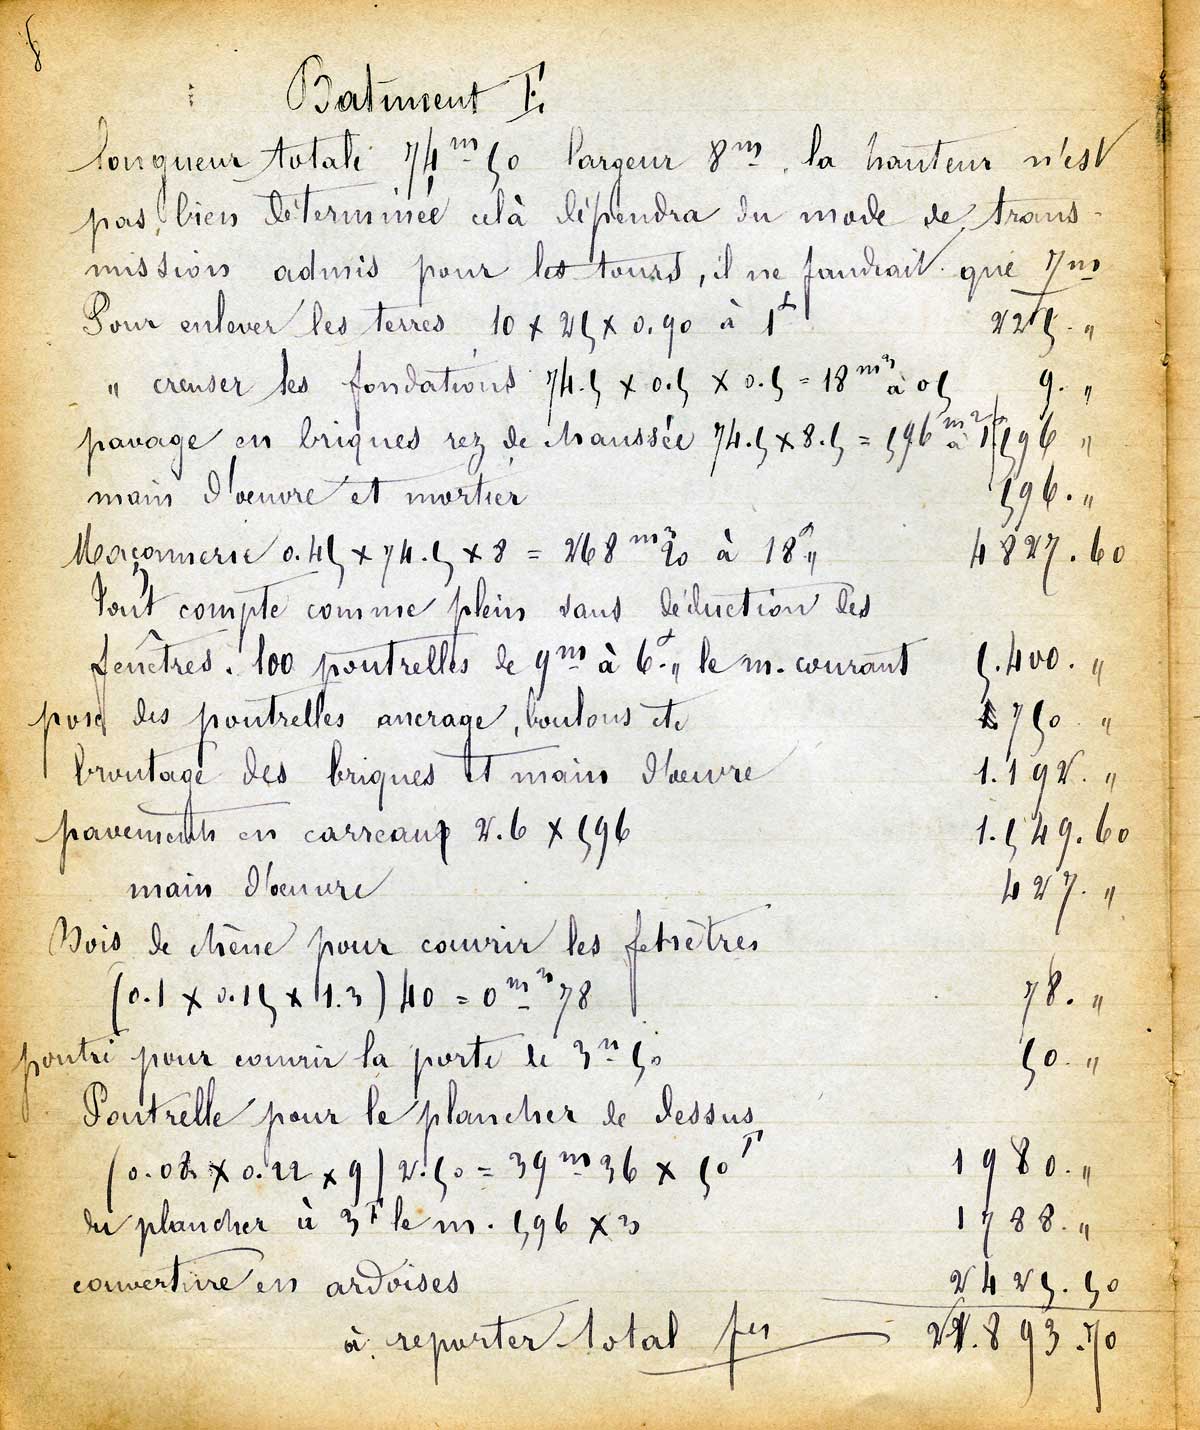 8
Batiment E.
longueur totale 74m50 largeur 8m. la hauteur n'est
pas bien déterminée celà dépendra du mode de trans-
mission admis pour les tours, il ne faudrait que 7m
Pour enlever les terres 10 x 25 x 0.90 à 1f 225. "
" creuser les fondations 74.5 x 0.5 x 0.5 = 18m3 à 05 9. "
pavage en briques rez de chaussée 74.5 x 8.5 = 596m2 à 1f 596 "
main d'oeuvre et mortier 596. "
Maçonnerie 0.45 x 74.5 x 8 = 268m3 20 à 18f " 4827.60
Tout compte comme plein sans déduction des
fenêtres. 100 poutrelles de 9m à 6f. " le m. courant 5.400. "
pose des poutrelles ancrage, boulons etc 750 "
broutage des briques et main d'oeuvre 1.192. "
pavements en carreaux 2.6 x 596 1.549.60
main d'oeuvre 427. "
Bois de chêne pour couvrir les fenètres
(0.1 x 0.15 x 1.3) 40 = 0m3 78 78. "
poutre pour couvrir la porte de 3m50 50. "
Poutrelle pour le plancher de dessus
(0.08 x 0.22 x 9) 2.50 = 39m36 x 50F 1980. "
du plancher à 3F le m. 596 x 3 1788. "
couverture en ardoises 2425.50
à reporter total fcs 21.893.70